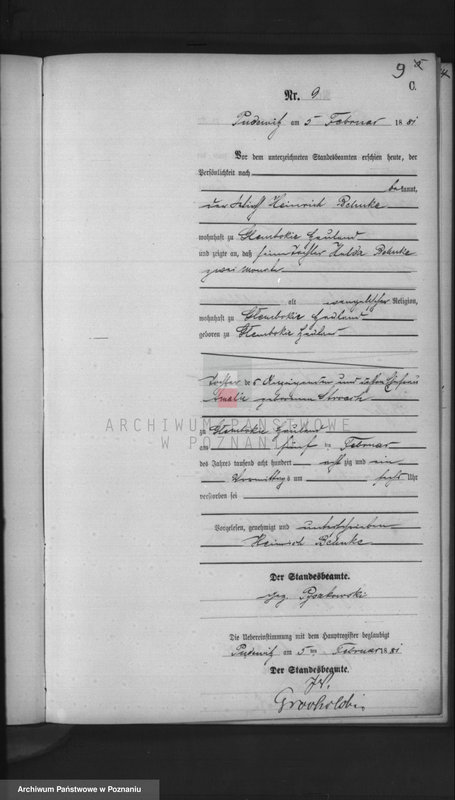 9
C.
Nr. 9
Pudewitz am 5 Februar 1881
Vor dem unterzeichneten Standesbeamten erschien heute, der
Persönlichkeit nach
bekannt,
der Wirth Heinrich Behnke
wohnhaft zu Glembokie Hauland
und zeigte an, daß seine Tochter Hulda Behnke
zwei Monate
alt evangelischer Religion,
wohnhaft zu Glembokie Hauland
geboren zu Glembokie Hauland
Tochter des Anzeigenden und dessen Ehefrau
Amalie geborenen
zu Glembokie Hauland
am fünf ten Februar
des Jahres tausend acht hundert acht zig und ein
Vormittags um Uhr
verstorben sei
Vorgelesen, genehmigt und unterschrieben
Heinrich Behnke
Der Standesbeamte.
gez Pyszkowski
Die Uebereinstimmung mit dem Hauptregister beglaubigt
Pudewitz am 5 ten Februar 1881
Der Standesbeamte.
ARCHIWUM PAŃSTWOWE
W POZNANIU
Archiwum Państwowe w Poznaniu